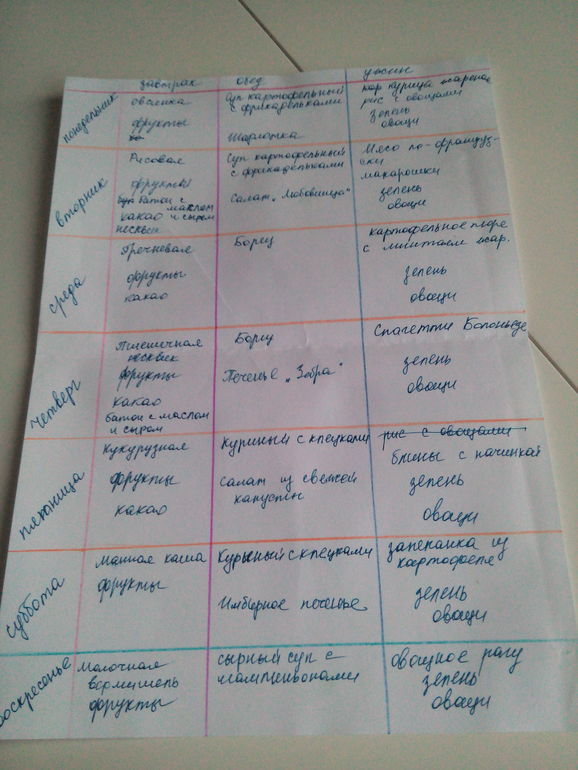 завтрак обед ужин
понедельник
овсянка
фрукты
суп картофельный
с фрикадельками
Шарлотка
кур курица жареная
рис с овощами
зелень
овощи
вторник
Рисовая
фрукты
батон с маслом
какао и сыром
несквик
Суп картофельный
с фрикадельками
Салат „Любовница"
Мясо по-француз-
ски
макарошки
зелень
овощи
среда
Гречневая
фрукты
какао
Борщ
картофельное пюре
с минтаем жар.
зелень
овощи
четверг
Пшеничная
несквик
фрукты
какао
батон с маслом
и сыром
Борщ
Печенье „Зебра"
Спагетти Болоньезе
зелень
овощи
пятница
Кукурузная
фрукты
какао
Куриный с клецками
салат из свежей
капусты
рис с овощами
блины с начинкой
зелень
овощи
суббота
Манная каша
фрукты
Куриный с клецками
Имбирное печенье
запеканка из
картофеля
зелень
овощи
воскресенье
Молочная
вермишель
фрукты
сырный суп с
шампиньонами
овощное рагу
зелень
овощи